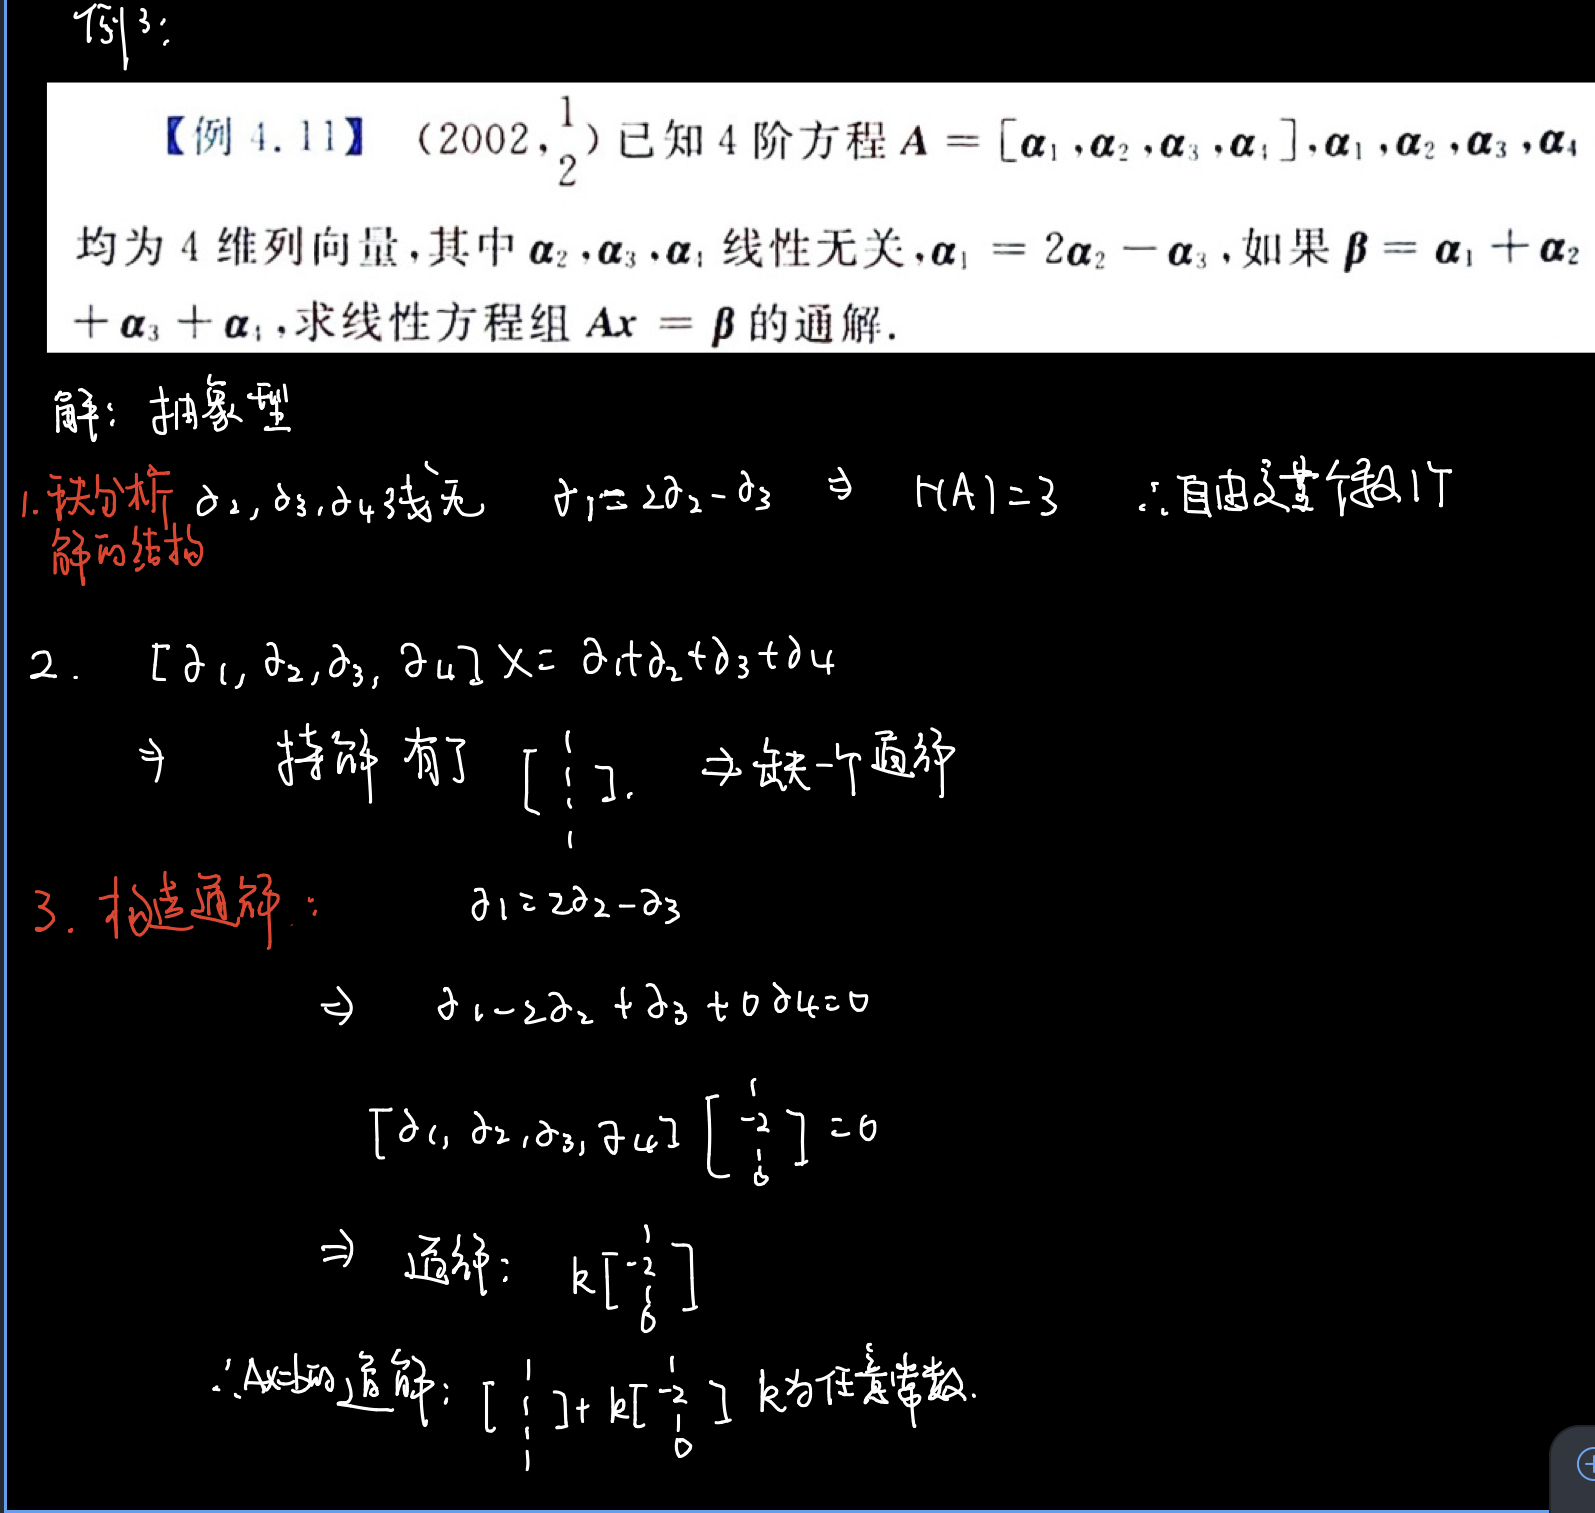 例3:
【例 4.11】 (2002, 1/2) 已知 4 阶方程 A = [α₁,α₂,α₃,α₄],α₁,α₂,α₃,α₄
均为 4 维列向量,其中 α₂,α₃,α₄ 线性无关,α₁ = 2α₂ − α₃,如果 β = α₁ + α₂
+ α₃ + α₄,求线性方程组 Ax = β 的通解.
解: 抽象型
1. 秩分析 ∂₂, ∂₃, ∂₄ 线无 ∂₁ = 2∂₂ - ∂₃ ⇒ r(A) = 3 ∴自由变量个数1个
解的结构
2. [∂₁, ∂₂, ∂₃, ∂₄] X = ∂₁+∂₂+∂₃+∂₄
⇒ 特解有了 [1 1 1 1]. ⇒ 缺一个通解
3. 构造通解: ∂₁ = 2∂₂ - ∂₃
⇒ ∂₁ - 2∂₂ + ∂₃ + 0∂₄ = 0
[∂₁, ∂₂, ∂₃, ∂₄] [1 -2 1 0] = 0
⇒ 通解: k[1 -2 1 0]
∴Ax=b的通解: [1 1 1 1] + k[1 -2 1 0] k为任意常数.